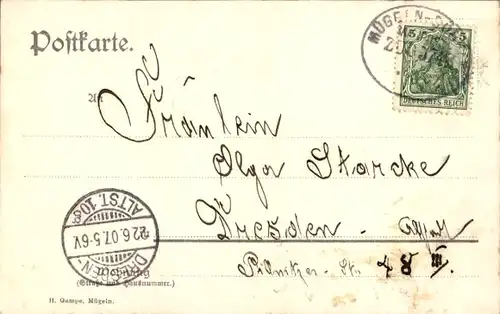 Postkarte.
MÜGELN-
5 5
DEUTSCHES REICH
An
Fräulein
Olga Starcke
Dresden - Altst.
Pillnitzer - Str. 48 III.
DRESDEN-ALTST. 10
22.6.07.5-6V.
Wohnung
(Straße und Hausnummer.)
H. Gampe, Mügeln.